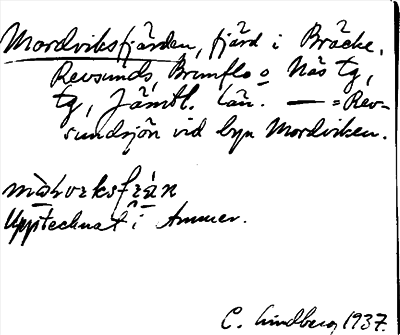 Mordviksfjärden, fjärd i Bräcke,
Revsunds, Brunflo o Näs tg,
tg, Jämtl. län. — = Rev-
sundsjön vid byn Mordviken.
Upptecknat i Ammer.
C. Lindberg 1937.